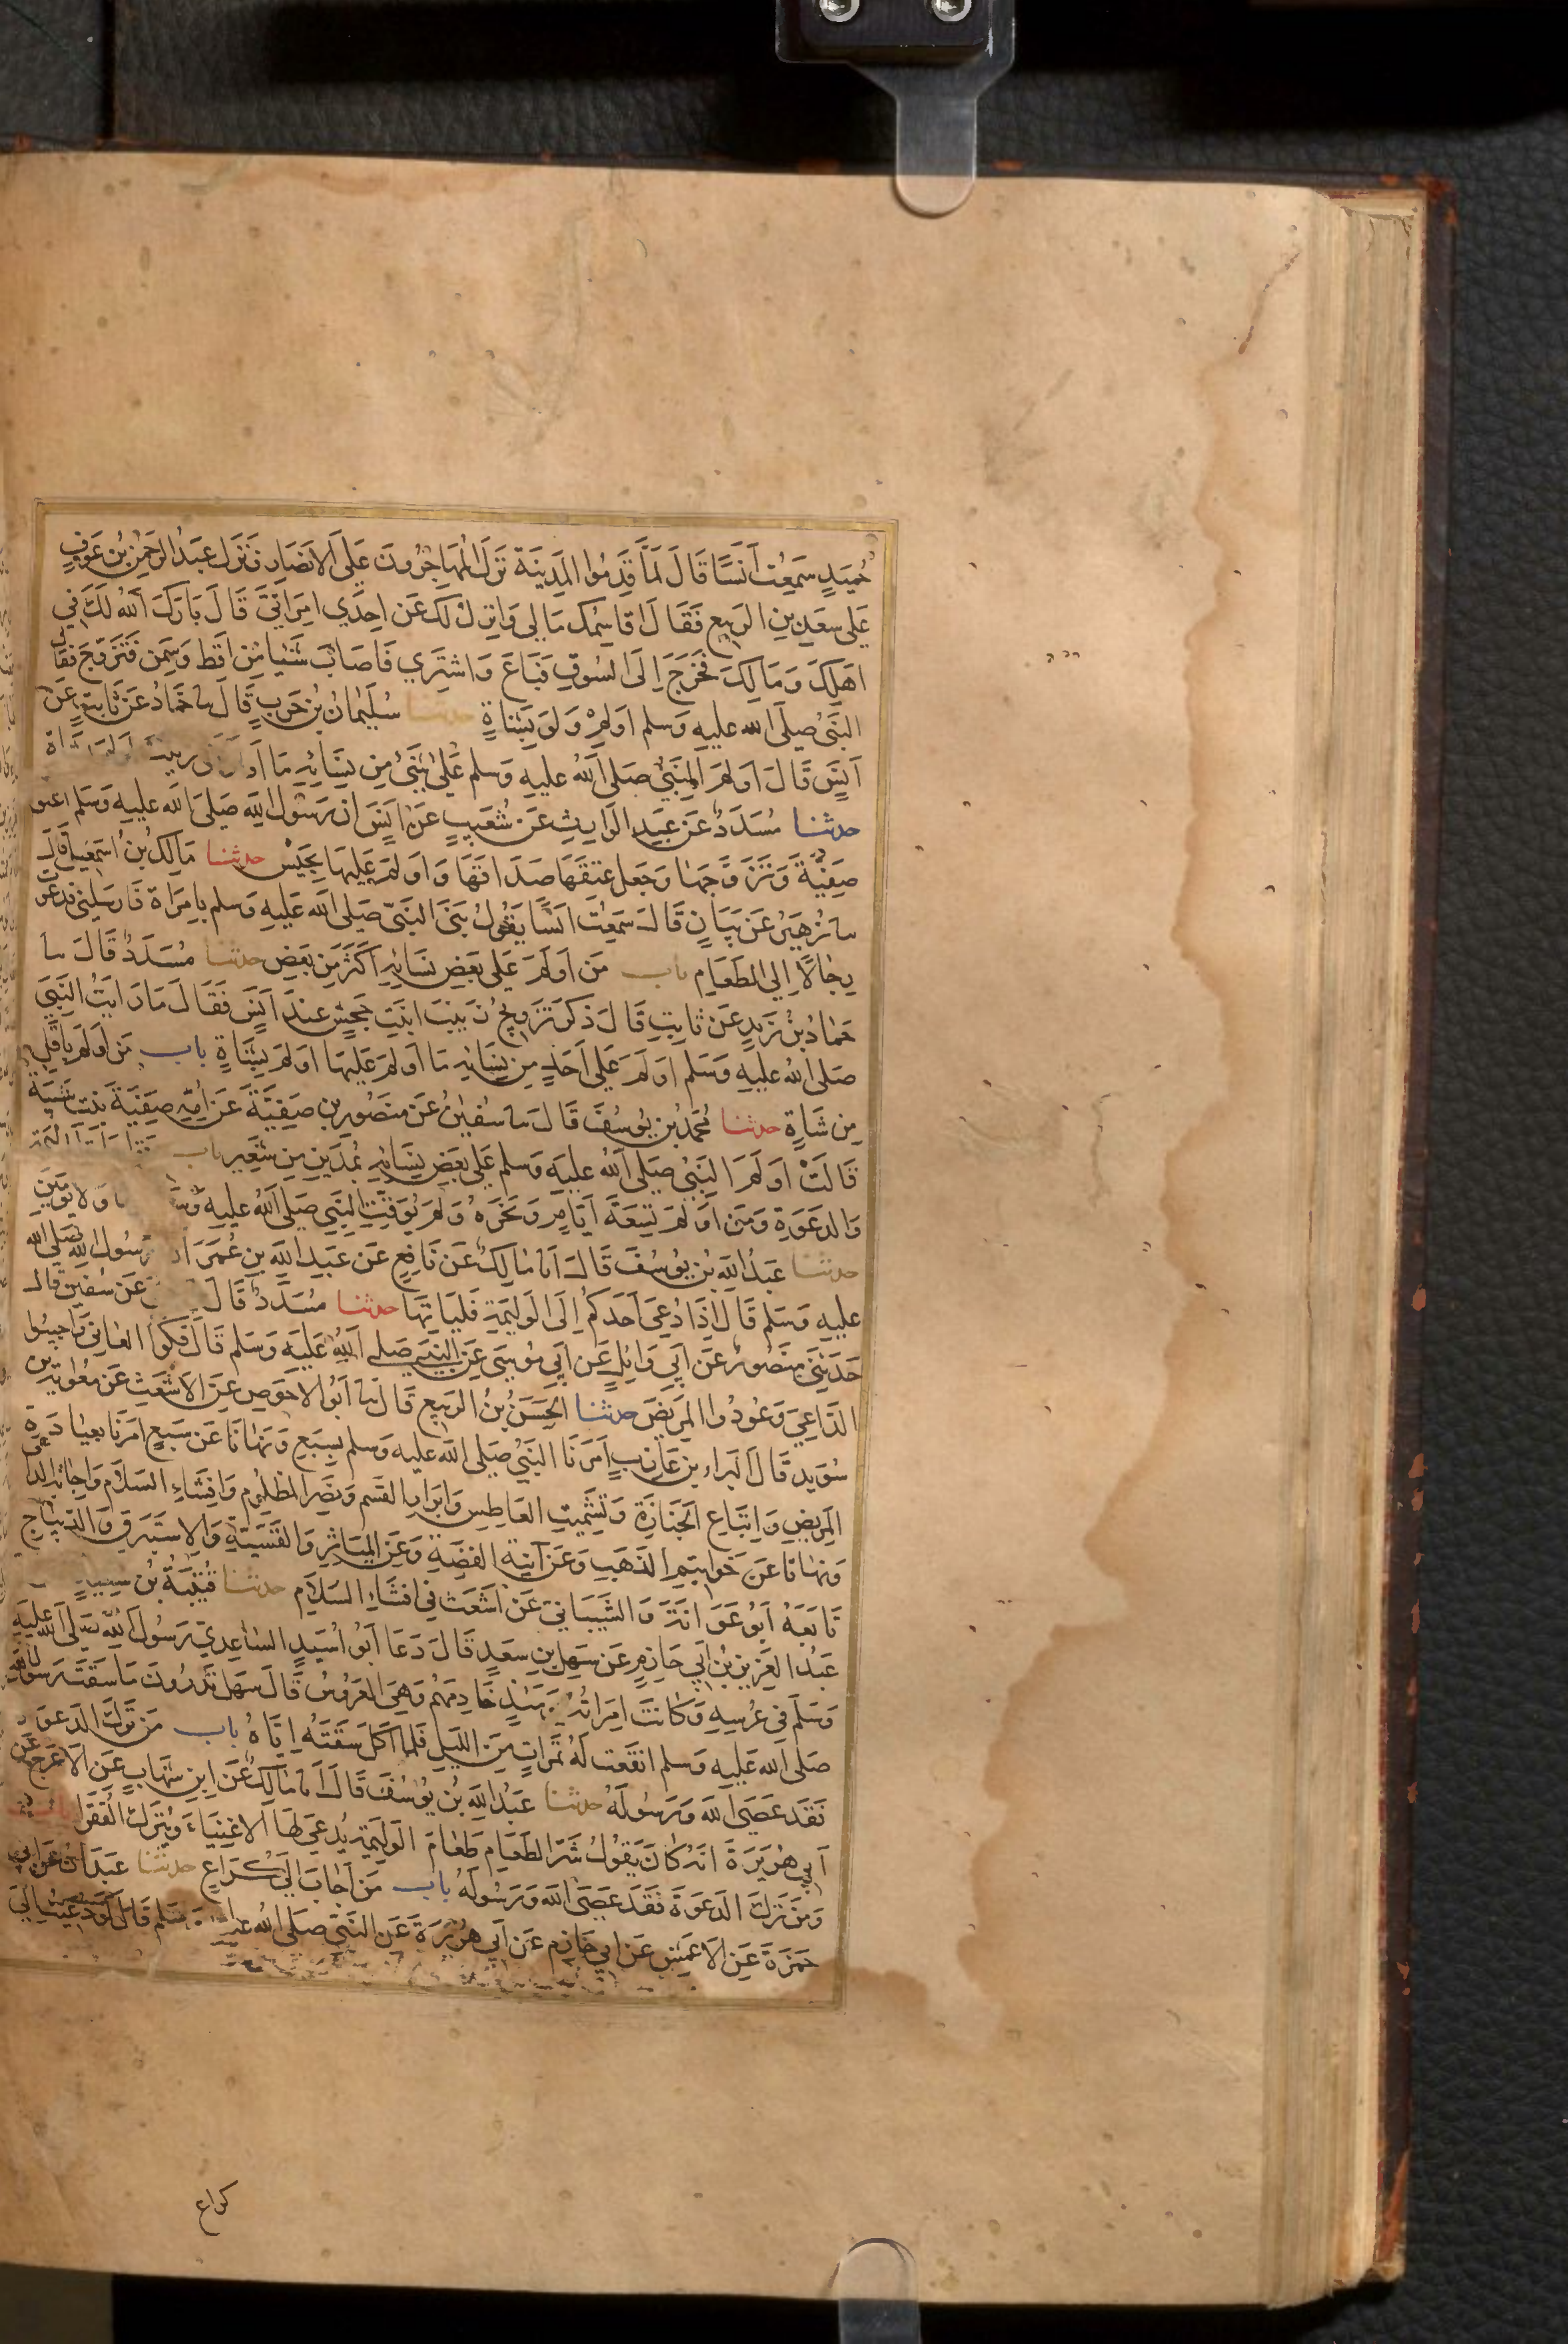 حُمَيدٍ سَمِعْتُ اَنَسًا قَالَ لَمَّا قَدِمُوا المَدِينَةَ نَزَلَ المُهَاجِرُونَ عَلَى الاَنصَارِ فَنَزَلَ عَبدُ الرَحمٰنِ بنُ عَوفٍ
عَلى سَعدِ بنِ الرَبيعِ فَقَالَ اُقاسِمُكَ مَالي وَانزِلُ لَكَ عَن اِحدَي امرَاَتَيَّ قَالَ بَارَكَ اَللهُ لَكَ في
اهلِكَ وَمَالِكَ فَخَرَجَ اِلَى السُوقِ فَبَاعَ وَاشتَرِي فَاصَابَ شَيًا مِن اَقِطٍ وَسَمنٍ فَتَزَوَّجَ فَقَال
النَبيُّ صلى الله عليهِ وَسلم اَولِمْ وَلَو بِشَاةٍ حدثنا سُلَيمَانُ بنُ حَربٍ قَالَ سا حَمَّادُ عَن ثَابِتٍ عَن
اَنَسٍ قَالَ اَولَمَ النَبيُّ صَلى اللهُ عليهِ وَسلم عَلى شَيءٍ مِن نِسَائِهِ مَا اَولَمَ
حدثنا مُسَدَدٌ عَن عَبدِ الوَارِثِ عَن شُعَيبٍ عَن اَنَسٍ ان رَسُولَ اللهِ صَلى الله عليهِ وَسَلم اعتق
صَفِيَّةَ وَتَزَوَّجَهَا وَجَعَل عِتقَهَا صَدَاقَهَا وَاَولَمَ عَلَيهَا بِحَيسٍ حدثنا مَالِكُ بنُ اسمعِيل قَالَ
سا زُهَيرٌ عَن بَيَانٍ قَالَ سَمِعتُ اَنَسًا يَقُولُ بَنَى النَبيّ صَلى الله عَليهِ وَسلم بِامرَاَة فَاَرسَلني فَدَعَوت
رِجَالًا اِلَى الطَعَامِ باب مَن اَولَمَ عَلي بَعضِ نِسَائِهِ اَكثَرَ مِن بَعضٍ حدثنا مُسَدَدٌ قَالَ سا
حَمادُ بنُ زَيدٍ عَن ثابِتٍ قَالَ ذُكِرَ تَزوِيجُ زَينَبَ ابنَتِ جَحشٍ عِندَ اَنَسٍ فَقَالَ مَا رَايتُ النَبيَّ
صَلى اللهُ عليهِ وَسَلم اَولَمَ عَلي اَحَدٍ مِن نِسَائِهِ مَا اَولَمَ عَلَيهَا اَولَمَ بِشَاةٍ باب مَن اَولَمَ بِاَقَلّ
مِن شَاةٍ حدثنا مُحَمدُ بنُ يُوسُفَ قَالَ سا سُفينُ عَن مَنصُورِ بنِ صَفِيَّةَ عَن اُمِّهِ صَفِيَّةَ بنتِ شَيبَة
قَالَتْ اَولَمَ النَبيُّ صَلى اللهُ عليهِ وَسلم عَلي بَعضِ نِسَائِهِ بِمُدَّينِ مِن شَعِيرٍ باب
وَالدَعوَةِ وَمَن اَولَمَ سَبعَةَ اَيَّامٍ وَنَحوَهُ وَلَم يُوَقِّتِ النَبي صَلى اللهُ عليهِ وَلا يَومَينِ
حدثنا عَبدُ اللهِ بنُ يُوسُفَ قَالَ انا مَالِكٌ عَن نَافِعٍ عَن عَبدِ اللهِ بنِ عُمَرَ ان رَسُولَ اللهِ صَلى الله
عليهِ وَسَلم قَالَ اِذَا دُعِيَ اَحَدُكُم اِلَى الوَلِيمَةِ فَليَاتِهَا حدثنا مُسَدَّدٌ قَالَ عَن سُفينَ قال
حَدَثَني مَنصُورٌ عَن اَبي وَائِلٍ عَن اَبي مُوسَى عَنِ النَبِيِّ صَلى اَللهُ عَليهِ وَسَلم قَالَ فُكّوا العَانيَ وَاَجيبُوا
الدَّاعِيَ وَعُودُوا المَرِيضَ حدثنا الحَسَنُ بنُ الرَبيعِ قَالَ سا اَبُو الاحوَصِ عَنِ الاَشعَثِ عَن مُعوِيَةَ بنِ
سُوَيدٍ قَالَ البَراء بن عَازِبٍ اَمَرَنَا النَبيُّ صَلى الله عليهِ وسلم بِسَبعٍ وَنَهَانَا عَن سَبعٍ امَرَنَا بعِيَادَةِ
المَرِيضِ وَاتِبَاعِ الجَنَازَةِ وَتَشمِيتِ العَاطِسِ وَاِبرَارِ القَسَمِ وَنَصرِ المَظلُومِ وَاِفشَاءِ السَلاَمِ وَاِجَابَةِ الداعي
وَنَهَانَا عَن خَوَاتِيمِ الذَهَبِ وَعَن آنِيَةِ الفضَّةِ وَعَنِ المَيَاثِرِ وَالقَسِّيَّةِ وَالاِستَبرَقِ وَالدِيبَاجِ
تَابَعَهُ اَبُو عَوَانَةَ وَالشَيبَانيّ عَن اَشعَثَ فِي اِفشَاءِ السَلاَمِ حدثنا قُتَيبَةُ بنُ سَعيدٍ
عَبدُ العَزِيزِ بنُ اَبي حَازِمٍ عَن سَهلِ بنِ سَعدٍ قَالَ دَعَا اَبُو اُسَيدٍ السَاعِدِيّ رَسُولَ اللهِ صَلى الله عليهِ
وَسَلم فِي عُرسِهِ وَكَانَت امرَاَتُهُ يَومَئِذٍ خَادِمَهُم وَهِيَ العَرُوسُ قَالَ سَهل تَدرُونَ مَا سَقَت رَسُولَ الله
صَلى الله عَليهِ وَسلم انقَعَت لَهُ تَمَراتٍ مِنَ اللَيلِ فَلَما اَكَلَ سَقَتهُ اِيَّاهُ باب مَن تَرَكَ الدَعوَة
فَقَد عَصَى اللهَ وَرَسُولَهُ حدثنا عَبدُ اللهِ بنُ يُوسُفَ قَالَ انا مَالِكٌ عَن ابنِ شِهَابٍ عَنِ الاَعرَجِ عَن
اَبي هُرَيرَةَ انَهُ كَانَ يَقُولُ شَرُّ الطَعَامِ طَعَامُ الوَلِيمَةِ يُدعَى لَهَا الاَغنِيَاءَ وَيُترَكُ الفُقَرَا
وَمَن تَرَكَ الدَعوَةَ فَقَد عَصَى اللهَ وَرَسُولَهُ باب مَن اَجَابَ اِلَى كُرَاعٍ حدثنا عَبدَانُ عَن ابي
حَمزَةَ عَنِ الاَعمَشِ عَن اَبي حَازِمٍ عَن اَبي هُرَيرَةَ عَنِ النَبيِّ صَلى اللهُ عليهِ وَسَلم قَالَ لَو دُعِيتُ اِلَى
كراع